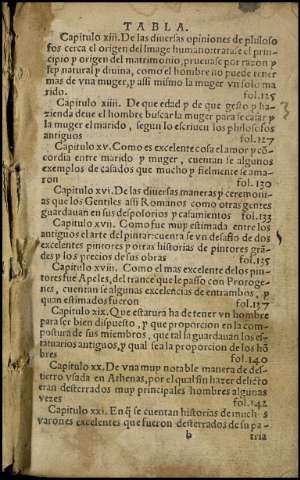 TABLA.
Capitulo xiii. De las diuersas opiniones de philoso
fos cerca el origen del linage humano: tratase el prin-
cipio y origen del matrimonio, prueuase por razon y
fep natural y diuina, como el hombre no puede tener
mas de vna muger, y assi mismo la muger vn solo ma
rido. fol.125
Capitulo xiiii. De que edad y de que gesto y ha-
zienda deue el hombre buscar la muger para se casar y
la muger el marido, segun lo escriuen los philosofos
antiguos fol.127
Capitulo xv. Como es excelente cosa el amor y cō-
cordia entre marido y muger, cuentan se algunos
exemplos de casados que mucho y fielmente se ama-
ron fol.130
Capitulo xvi. De las diuersas maneras y ceremoni-
as que los Gentiles assi Romanos como otras gentes
guardauan en sus desposorios y casamientos fol.133
Capitulo xvii. Como fue muy estimada entre los
antiguos el arte del pintar: cuenta se vn desafio de dos
excelentes pintores y otras historias de pintores grā-
des y los precios de sus obras fol.135
Capitulo xviii. Como el mas excelente de los pin-
tores fue Apeles, del trance que le passo con Protoge-
nes, cuentan se algunas excelencias de entrambos, y
quan estimados fueron fol.137
Capitulo xix. Que estatura ha de tener vn hombre
para ser bien dispuesto, y que proporcion en la com-
postura de sus miembros, que tal la guardauan los es-
tatuarios antiguos, y qual sea la proporcion de los hō
bres fol.140
Capitulo xx. De vna muy notable manera de des-
tierro vsada en Athenas, por el qual sin hazer delicto
eran desterrados muy principales hombres algunas
vezes fol.142
Capitulo xxi. En q̄ se cuentan historias de muchos
varones excelentes que fueron desterrados de su pa-
b tria